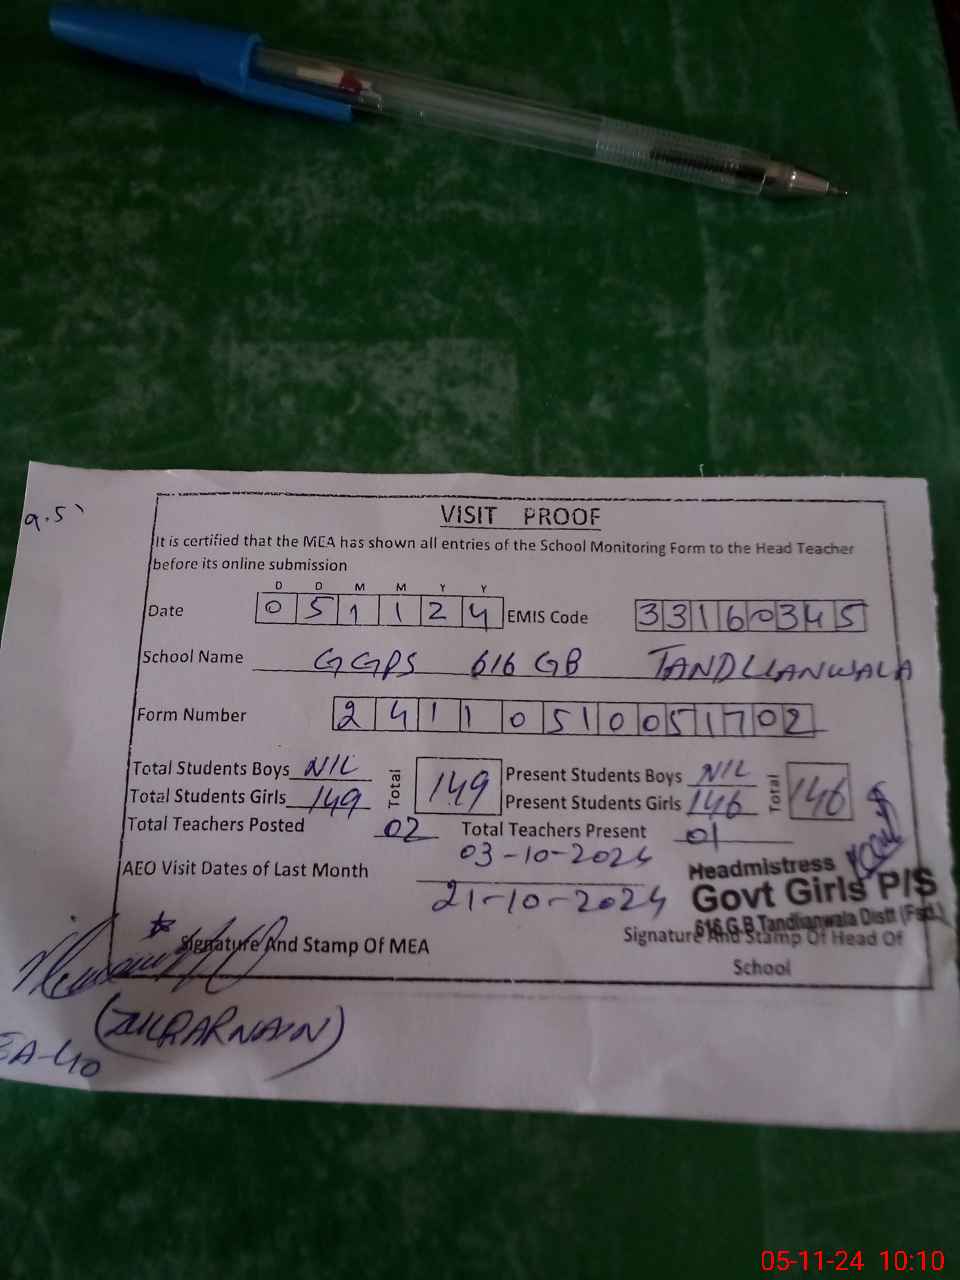 9.5
VISIT PROOF
It is certified that the MEA has shown all entries of the School Monitoring Form to the Head Teacher
before its online submission
D D M M Y Y
Date 0 5 1 1 2 4 EMIS Code 3 3 1 6 0 3 4 5
School Name GGPS 616 GB TANDLIANWALA
Form Number 2 4 1 1 0 5 1 0 0 5 1 7 0 2
Total Students Boys NIL Total 149 Present Students Boys NIL Total 146
Total Students Girls 149 Present Students Girls 146
Total Teachers Posted 02 Total Teachers Present 01
AEO Visit Dates of Last Month 03-10-2024
21-10-2024
Headmistress
Govt Girls P/S
616 G.B Tandlianwala Distt (Fsd.)
Signature And Stamp Of MEA Signature And Stamp Of Head Of
School
(ZULQARNAIN)
EA-40
05-11-24 10:10